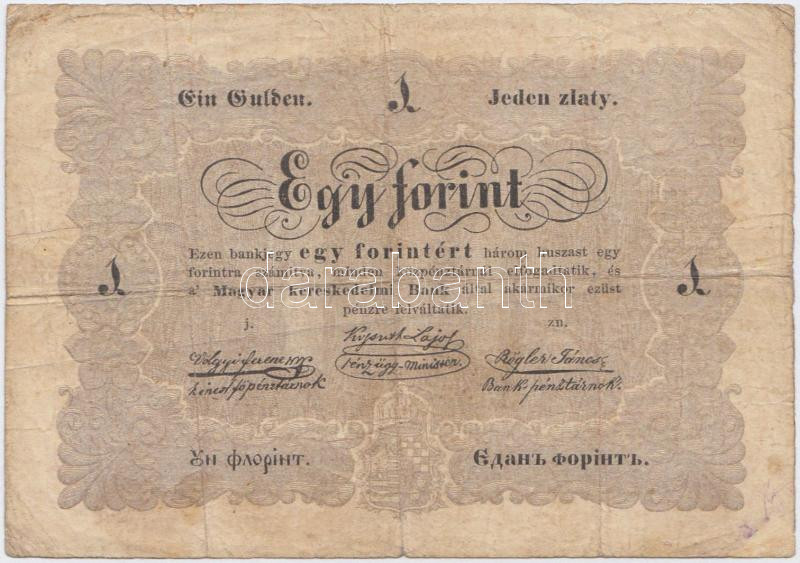 Ein Gulden. 1 Jeden zlaty.
Egy forint
Ezen bankjegy egy forintért három huszast egy
forintra számitva, minden közpénztárnál elfogadtatik, és
1 a' Magyar kereskedelmi Bank által akármikor ezüst 1
pénzre felváltatik.
j. zn.
Kossuth Lajos
Völgyi Ferencz Rögler János
pénzügy-Minister.
kincst. főpénztárnok Bank-pénztárnok.
Ун флорінт. Єданъ форінтъ.
darabanth